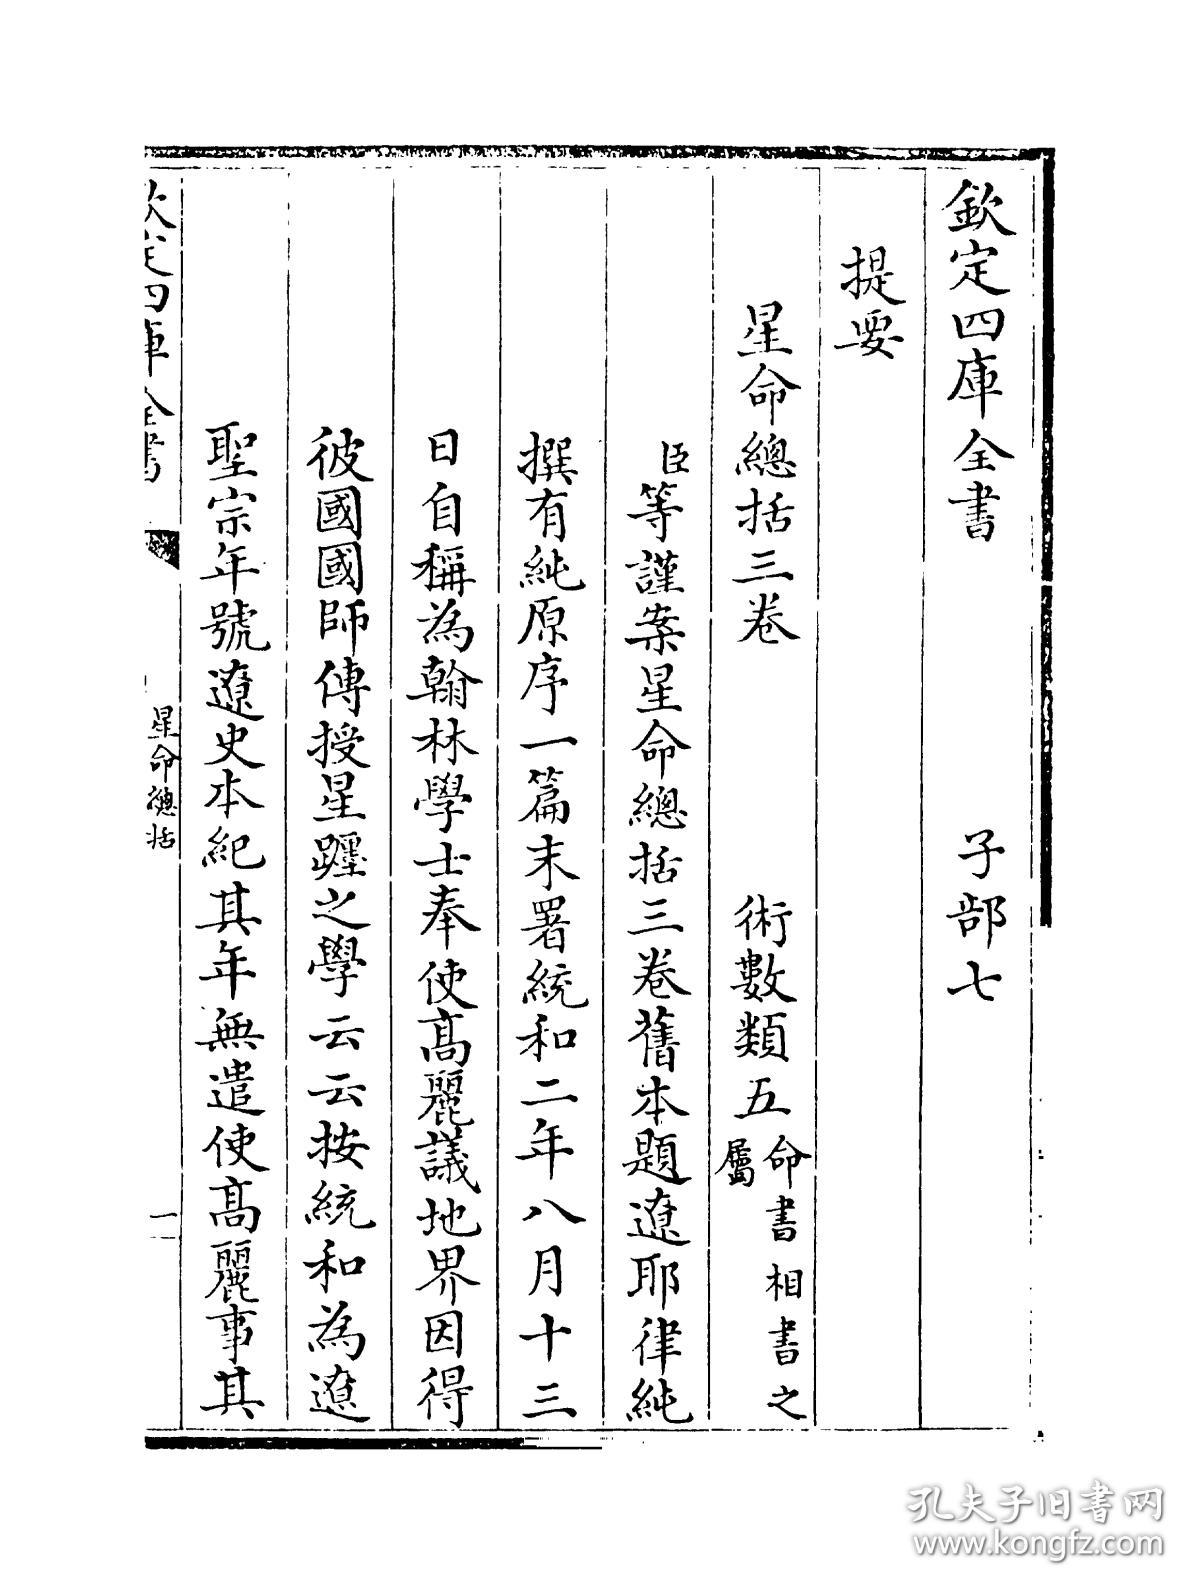 欽定四庫全書　子部七
提要
星命總括三卷　術數類五命書相書之屬
臣等謹案星命總括三卷舊本題遼耶律純
撰有純原序一篇末署統和二年八月十三
日自稱為翰林學士奉使高麗議地界因得
彼國國師傳授星躔之學云云按統和為遼
聖宗年號遼史本紀其年無遣使高麗事其
欽定四庫全書　星命總括　一
孔夫子旧书网
www.kongfz.com